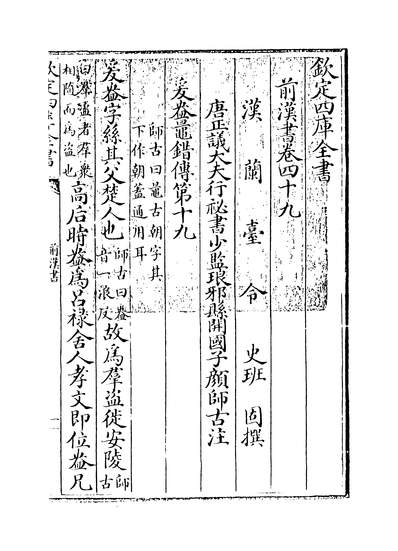 欽定四庫全書
前漢書卷四十九
漢蘭臺令史班固撰
唐正議大夫行祕書少監琅邪縣開國子顔師古注
爰盎鼂錯傳第十九
師古曰鼂古朝字其
下作朝蓋通用耳
爰盎字絲其父楚人也師古曰盎音一浪反故爲羣盜徙安陵師古
曰羣盜者羣衆相隨而爲盜也高后時盎爲呂禄舍人孝文即位盎兄
欽定四庫全書
前漢書
一